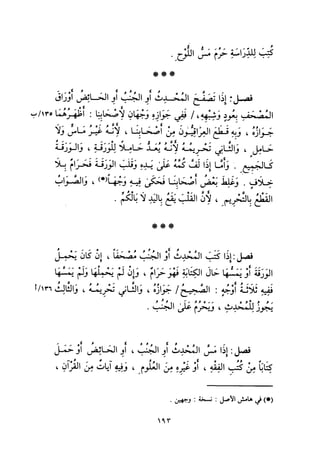 كُتِبَ لِلدِّرَاسَةِ حَرُمَ مَسُّ اللَّوْحِ .
***
فصل: إِذَا تَصَفَّحَ المُحْدِثُ أَوِ الجُنُبُ أَوِ الحَائِضُ أَوْرَاقَ
المُصْحَفِ بِعُودٍ وَشِبْهِهِ، / فَفِي جَوَازِهِ وَجْهَانِ لِأَصْحَابِنَا : أَظْهَرُهُمَا ١٣٥/ب
جَوَازُهُ ، وَبِهِ قَطَعَ العِرَاقِيُّونَ مِنْ أَصْحَابِنَا ، لِأَنَّهُ غَيْرُ مَاسٍّ وَلَا
حَامِلٍ ، وَالثَّانِي تَحْرِيمُهُ لِأَنَّهُ يُعَدُّ حَامِلًا لِلْوَرَقَةِ ، وَالوَرَقَةُ
كَالجَمِيعِ . وَأَمَّا إِذَا لَفَّ كُمَّهُ عَلَىٰ يَدِهِ وَقَلَبَ الوَرَقَةَ فَحَرَامٌ بِلَا
خِلَافٍ . وَغَلِطَ بَعْضُ أَصْحَابِنَا فَحَكَىٰ فِيهِ وَجْهاً(*) ، وَالصَّوَابُ
القَطْعُ بِالتَّحْرِيمِ ، لِأَنَّ القَلْبَ يَقَعُ بِاليَدِ لَا بِالْكُمِّ .
***
فصل: إِذَا كَتَبَ المُحْدِثُ أَوْ الجُنُبُ مُصْحَفاً ، إِنْ كَانَ يَحْمِلُ
الوَرَقَةَ أَوْ يَمَسُّهَا حَالَ الكِتَابَةِ فَهُوَ حَرَامٌ ، وَإِنْ لَمْ يَحْمِلْهَا وَلَمْ يَمَسَّهَا
فَفِيهِ ثَلَاثَةُ أَوْجُهٍ : الصَّحِيحُ / جَوَازُهُ ، وَالثَّانِي تَحْرِيمُهُ ، وَالثَّالِثُ ١٣٦/أ
يَجُوزُ لِلْمُحْدِثِ ، وَيَحْرُمُ عَلَىٰ الجُنُبِ .
فصل: إِذَا مَسَّ المُحْدِثُ أَوِ الجُنُبُ ، أَوِ الحَائِضُ أَوْ حَمَلَ
كِتَاباً مِنْ كُتُبِ الفِقْهِ ، أَوْ غَيْرِهِ مِنَ العُلُومِ ، وَفِيهِ آيَاتٌ مِنَ القُرْآنِ ،
(*) في هامش الأصل : نسخة : وجهين .
١٩٣